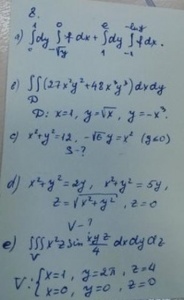 8.
a) ∫₀¹dy ∫₋√y⁰ f dx + ∫₁ᵉ dy ∫₋₁^(-ln y) f dx.
b) ∬_D (27x²y² + 48x³y³) dx dy
D: x=1, y=√x, y=-x³
c) x²+y²=12, -√6 y = x² (y≤0)
S-?
d) x²+y²=2y, x²+y²=5y,
z=√(x²+y²), z=0
V-?
e) ∭_V x²z sin(xyz/4) dx dy dz
V: {x=1, y=2π, z=4
x=0, y=0, z=0